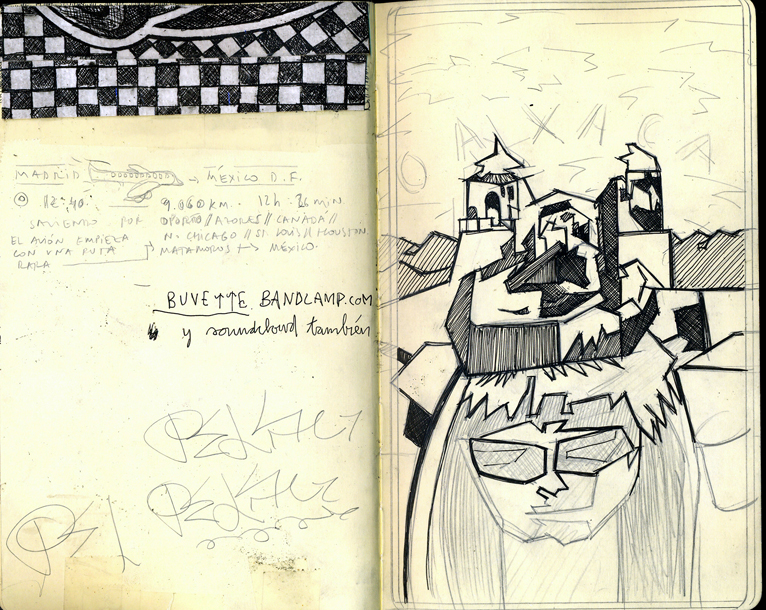 MADRID → MÉXICO D.F.
12:40. 9.060 KM. 12h : 26 min
SALIENDO POR OPORTO // AZORES // CANADÁ //
EL AVIÓN EMPIEZA N. CHICAGO // St LOUIS // HOUSTON
CON UNA RUTA MATAMOROS → MÉXICO.
RARA
BUVETTE BANDCAMP.COM
y soundcloud también
OAXACA